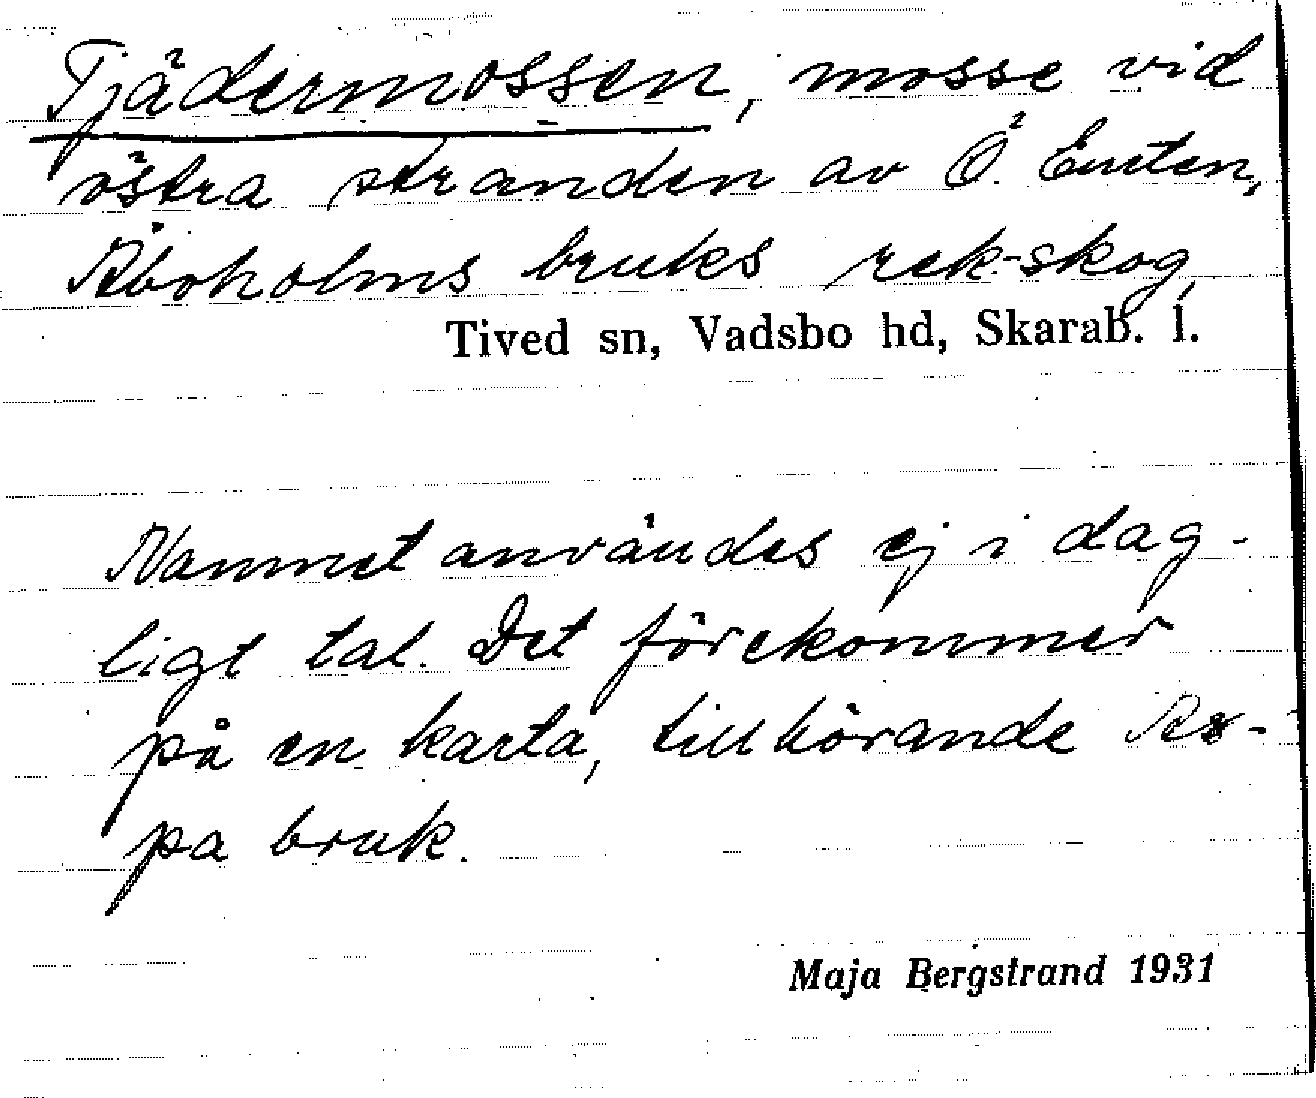 Tjädermossen, mosse vid
östra stranden av Ö. Enten,
Åboholms bruks rek-skog,
Tived sn, Vadsbo hd, Skarab. l.
Namnet användes ej i dag-
ligt tal. Det förekommer
på en karta, tillhörande Rs-
pa bruk.
Maja Bergstrand 1931